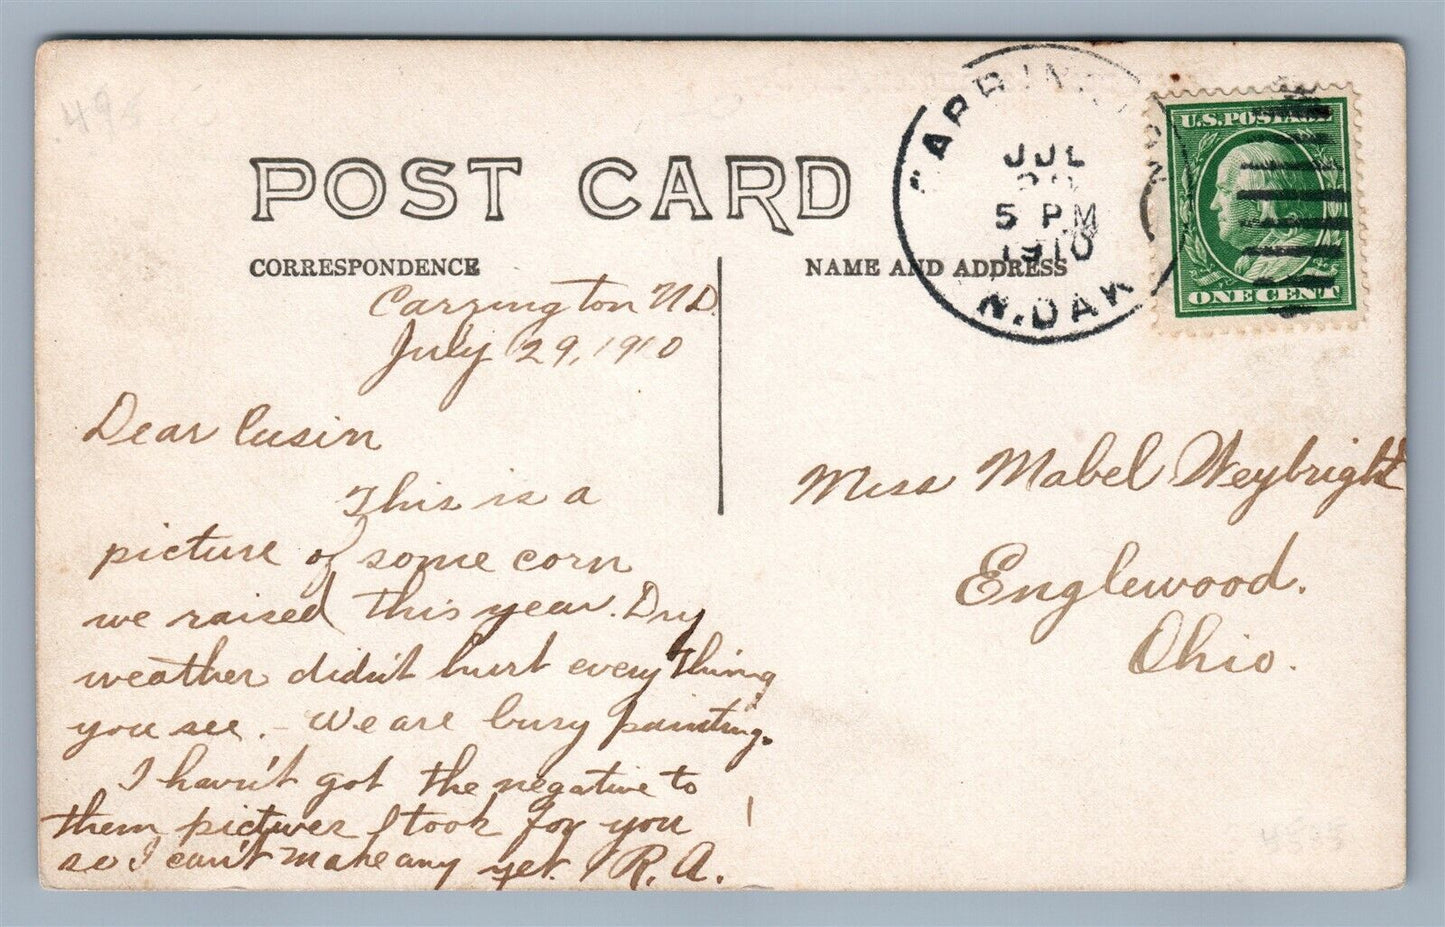 POST CARD
CORRESPONDENCE
NAME AND ADDRESS
CARRINGTON
JUL
5 PM
1910
N.DAK
U.S.POSTAGE
ONE CENT
Carrington ND.
July 29, 1910
Dear Cusin
This is a
picture of some corn
we raised this year. Dry
weather didn't hurt everything
you see. - We are busy painting.
I havn't got the negative to
them pictures I took for you
so I can't make any yet. R. A.
Miss Mabel Weybright
Englewood.
Ohio.